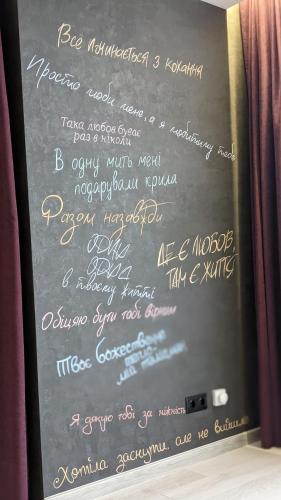 Все починається з кохання
Просто люби мене, а я любитиму тебе
Така любов буває
раз в ніколи
В одну мить мені
подарували крила
Разом назавжди
в твоєму житті
ДЕ Є ЛЮБОВ,
ТАМ Є ЖИТТЯ
Обіцяю бути тобі вірним
Твоє божественне
тепло
мій талісман
Я дякую тобі за ніжність
Хотіла заснути але не вийшло